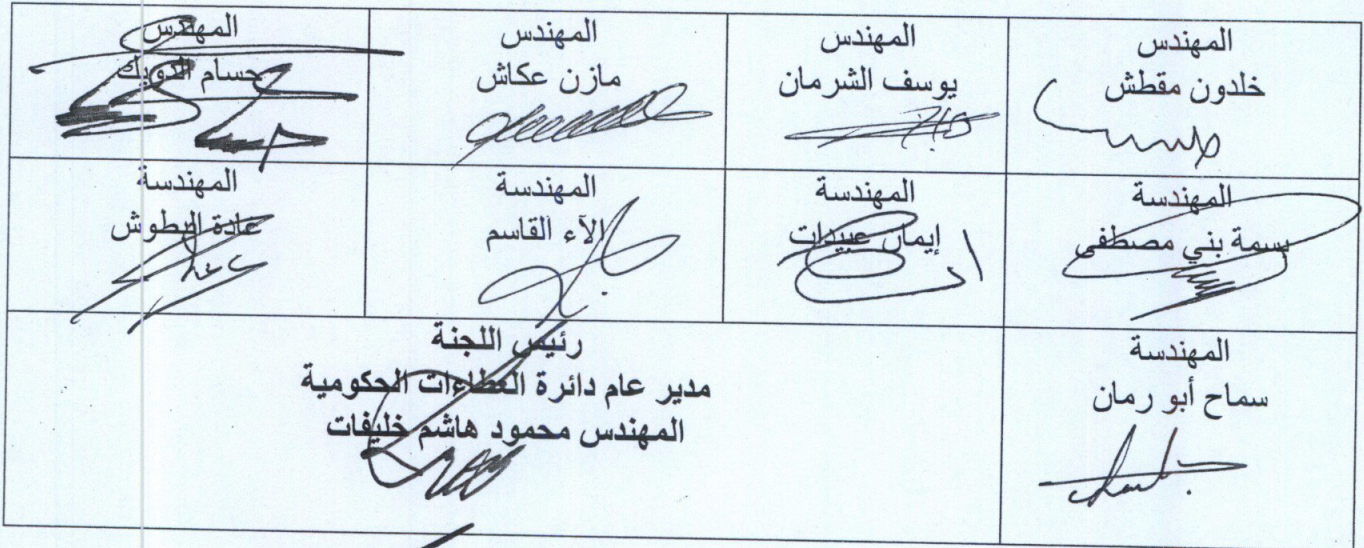 المهندس
خلدون مقطش
المهندس
يوسف الشرمان
المهندس
مازن عكاش
المهندس
حسام الدويك
المهندسة
بسمة بني مصطفى
المهندسة
إيمان عبيدات
المهندسة
الآء القاسم
المهندسة
غادة البطوش
المهندسة
سماح أبو رمان
رئيس اللجنة
مدير عام دائرة العطاءات الحكومية
المهندس محمود هاشم خليفات